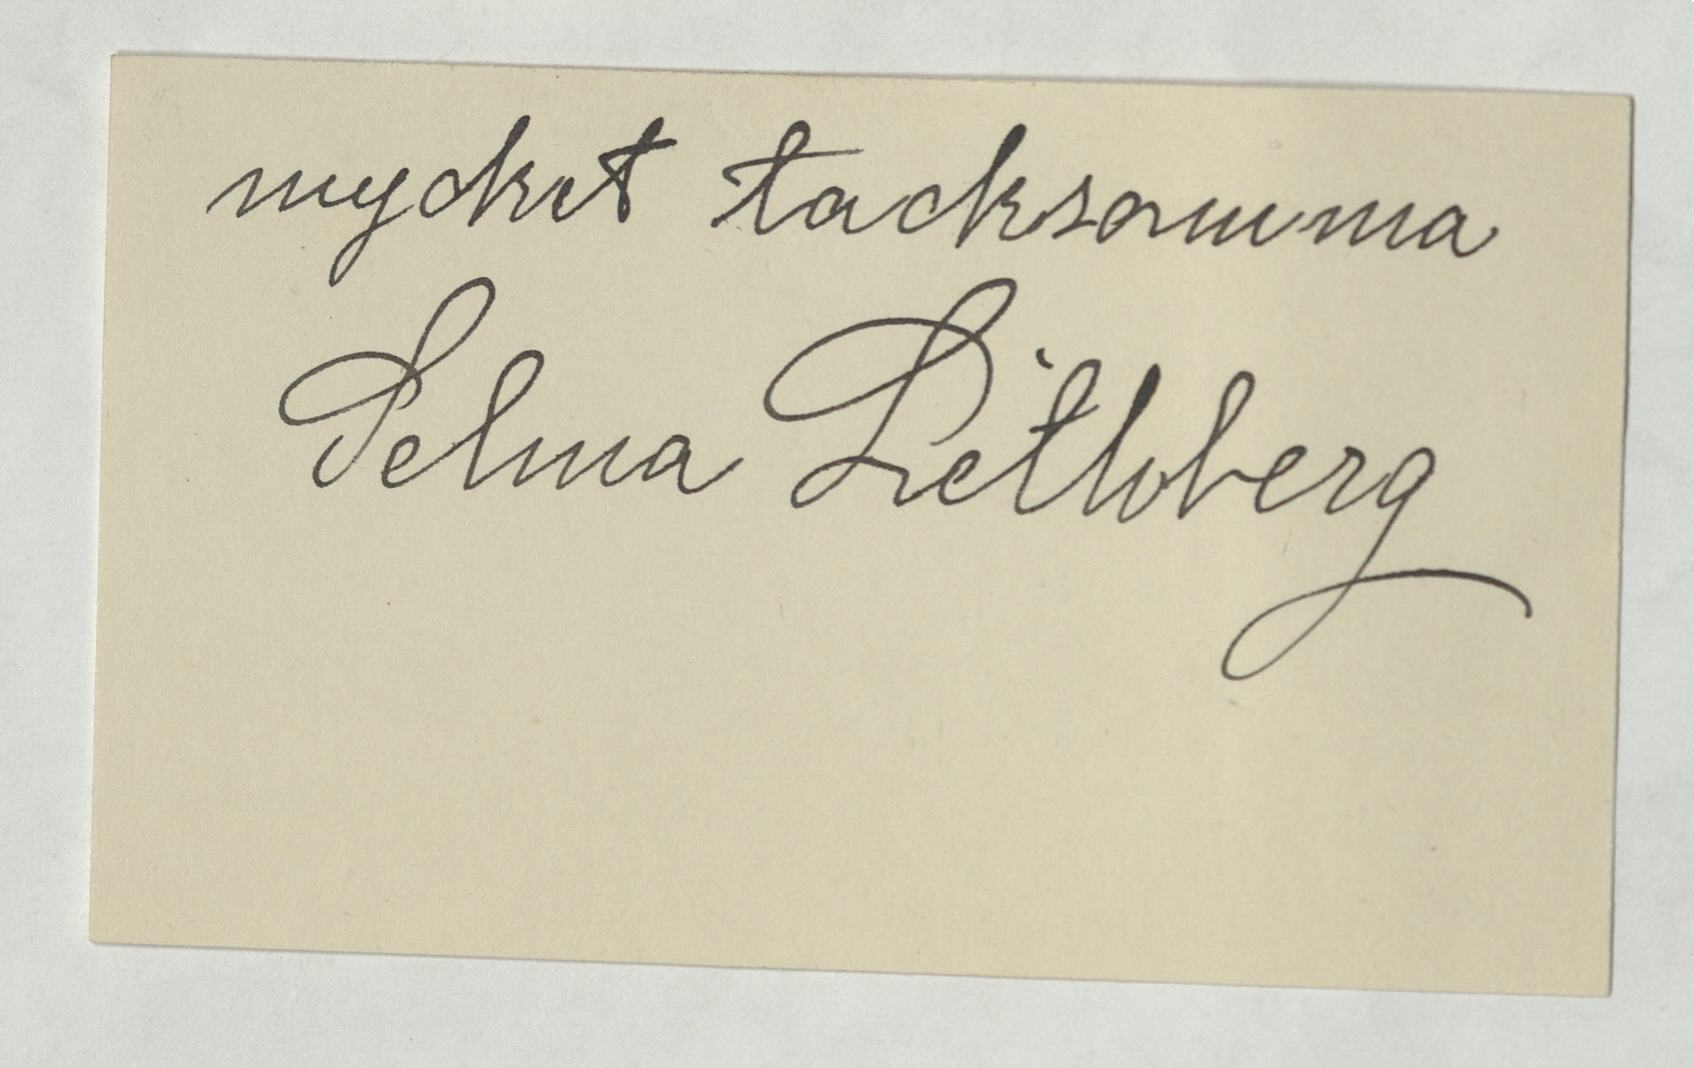 mycket tacksamma
Selma Lithberg